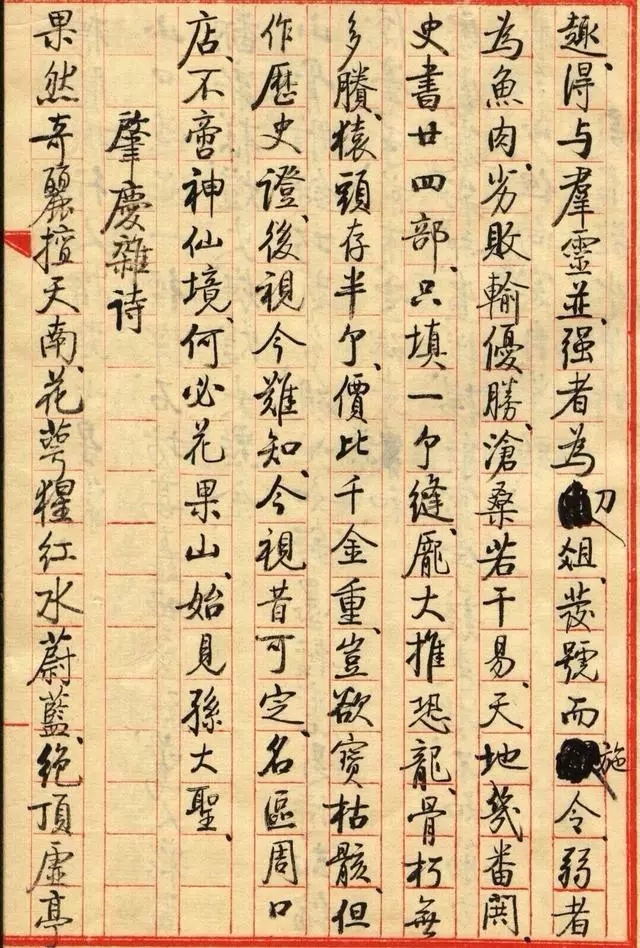 趣、得与羣靈並、强者爲刀俎、發號而施令、弱者
為魚肉、劣敗輸優勝、滄桑若干易、天地幾番閑、
史書廿四部、只填一个縫、龐大推恐龍、骨朽無
多賸、猿頭存半个、價比千金重、豈欲寶枯骸、但
作歷史證、後視今難知、今視昔可定、名區周口
店、不啻神仙境、何必花果山、始見孫大聖、
肇慶雜诗
果然奇麗擅天南、花萼猩红水蔚藍、絶頂虚亭